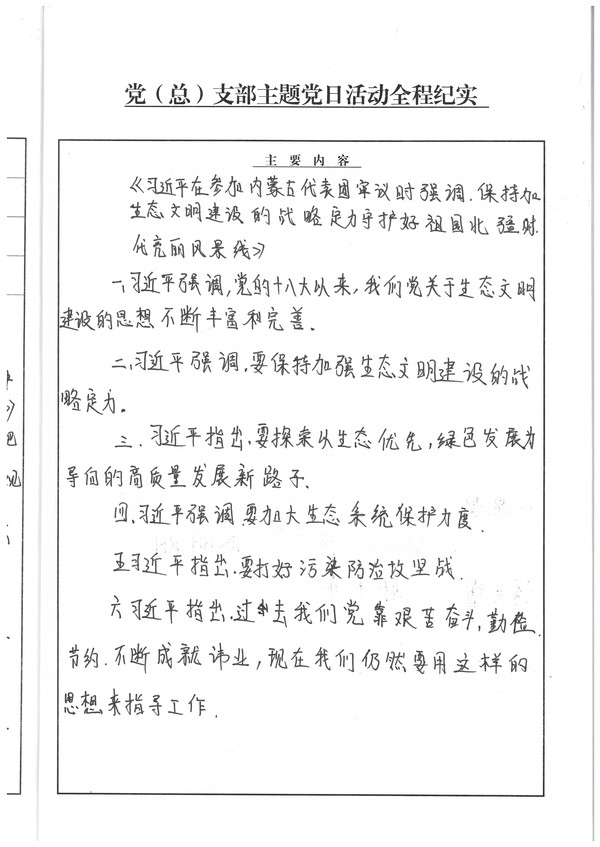 党（总）支部主题党日活动全程纪实
主 要 内 容
《习近平在参加内蒙古代表团审议时强调.保持加
生态文明建设的战略定力守护好祖国北疆时
代亮丽风景线》
一、习近平强调,党的十八大以来,我们党关于生态文明
建设的思想不断丰富和完善.
二.习近平强调.要保持加强生态文明建设的战
略定力。
三.习近平指出.要探索以生态优先,绿色发展为
导向的高质量发展新路子.
四.习近平强调要加大生态系统保护力度.
五习近平指出.要打好污染防治攻坚战.
六习近平指出.过去我们党靠艰苦奋斗,勤俭
节约.不断成就伟业,现在我们仍然要用这样的
思想来指导工作.